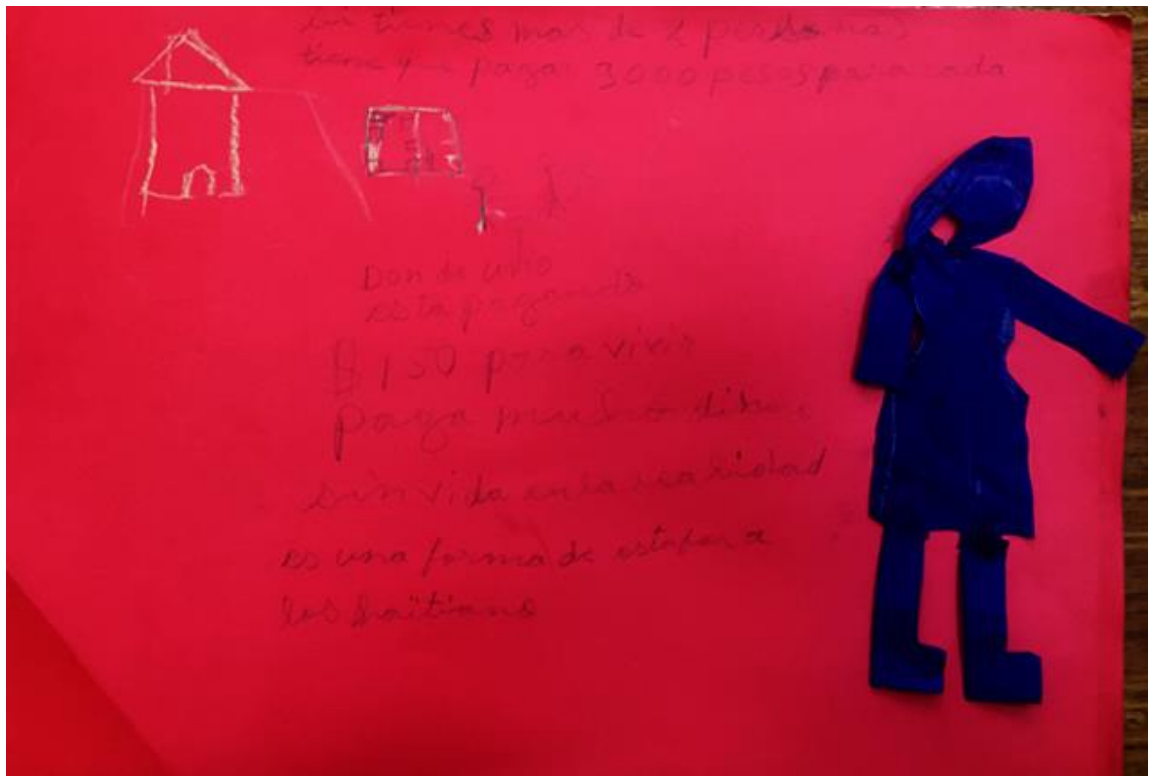 si tienes mas de 2 personas
tiene que pagar 3000 pesos para cada
Donde uno
esta pagando
$150 para vivir
paga mucho
sin vida en la realidad
es una forma de estafar a
los haïtiano